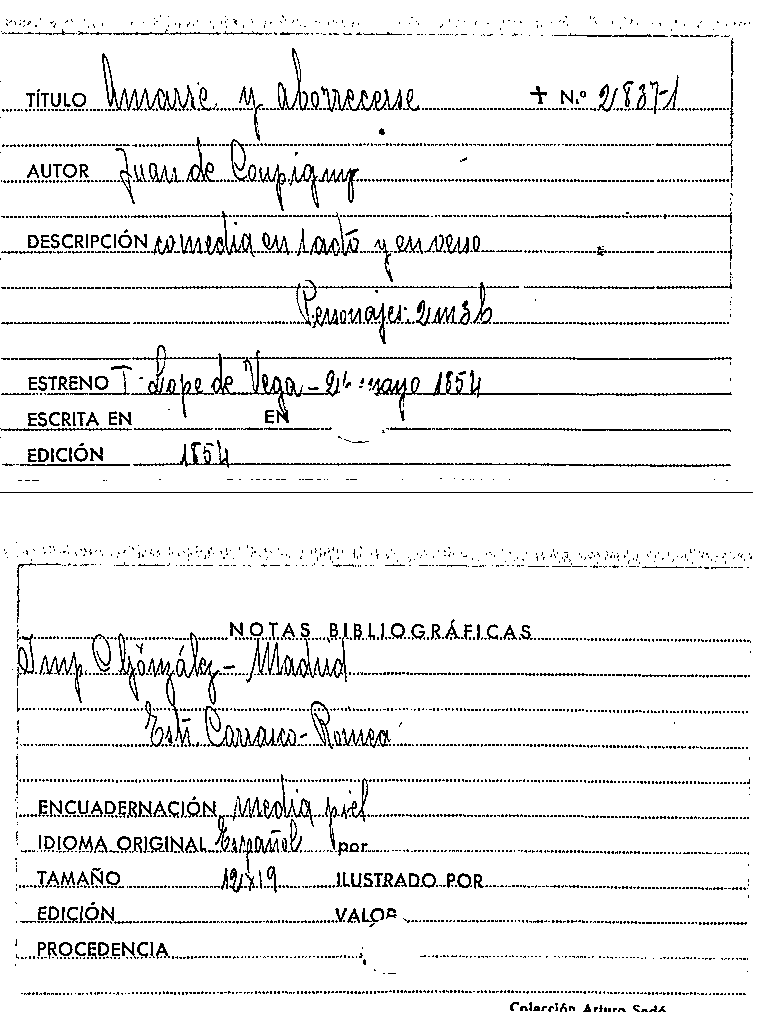 TÍTULO Amarse y aborrecerse + N.º 21837-1
AUTOR Juan de Coupigny
DESCRIPCIÓN comedia en 1 acto y en verso
Personajes: 2m3h
ESTRENO T. Lope de Vega - mayo 1854
ESCRITA EN EN
EDICIÓN 1854
NOTAS BIBLIOGRÁFICAS
Imp C González - Madrid
Estr. Carrasco - Romea
ENCUADERNACIÓN media piel
IDIOMA ORIGINAL Español por
TAMAÑO 12x19 ILUSTRADO POR
EDICIÓN VALOR
PROCEDENCIA
Colección Arturo Sedó